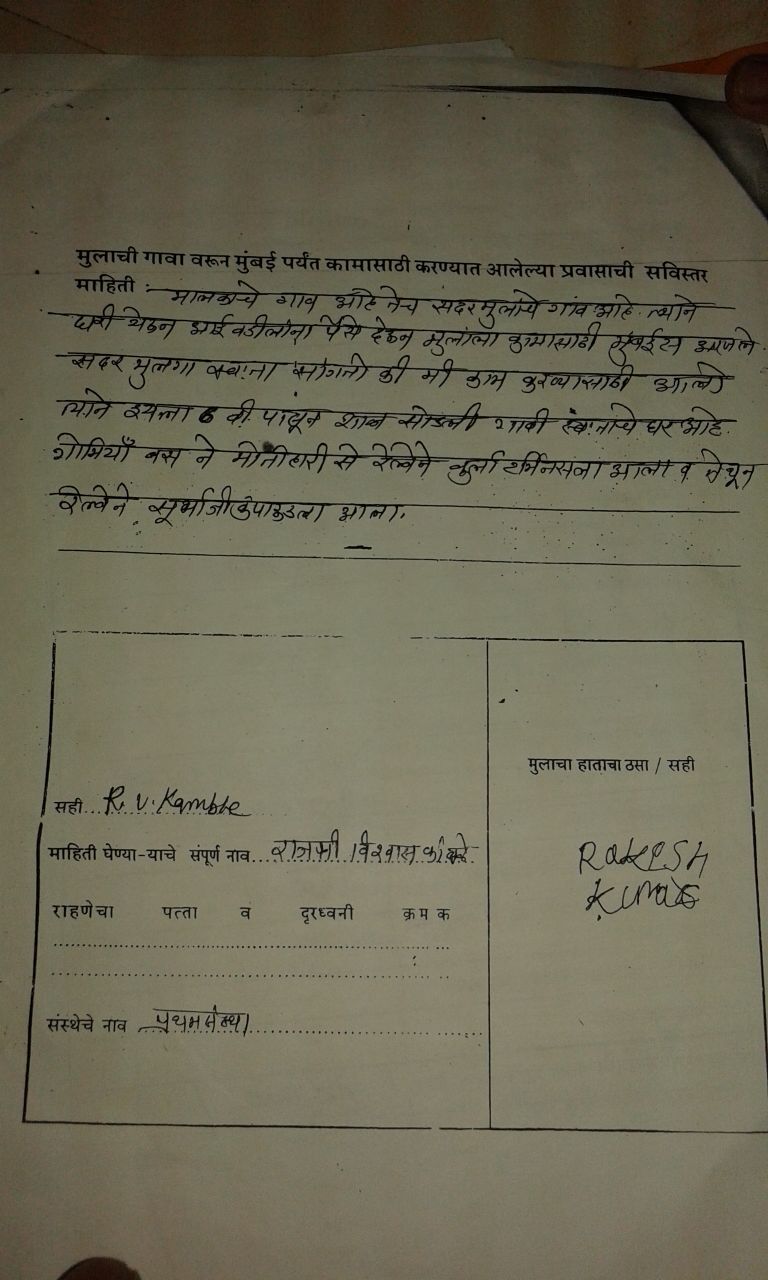 मुलाची गावा वरून मुंबई पर्यंत कामासाठी करण्यात आलेल्या प्रवासाची सविस्तर
माहिती :- मालकाचे गाव आहे तेच सदर मुलाचे गाव आहे. त्याने
घरी येऊन आई वडीलांना पैसे देऊन मुलाला कामासाठी मुंबईस आणले
सदर मुलगा स्वतः सांगतो की मी काम करण्यासाठी आलो
त्याने इयत्ता 6 वी पासून शाळा सोडली गावी स्वतःचे घर आहे.
बस ने मोतीहारी से रेल्वेने कुर्ला टर्मिनसला आला व तेथून
रेल्वेने आला.
सही... R. V. Kamble
माहिती घेण्या-याचे संपूर्ण नाव... राजश्री विश्वास कांबळे
राहणेचा पत्ता व दूरध्वनी क्रमक
संस्थेचे नाव प्रथम संस्था
मुलाचा हाताचा ठसा / सही
RAKESH
KUMAR